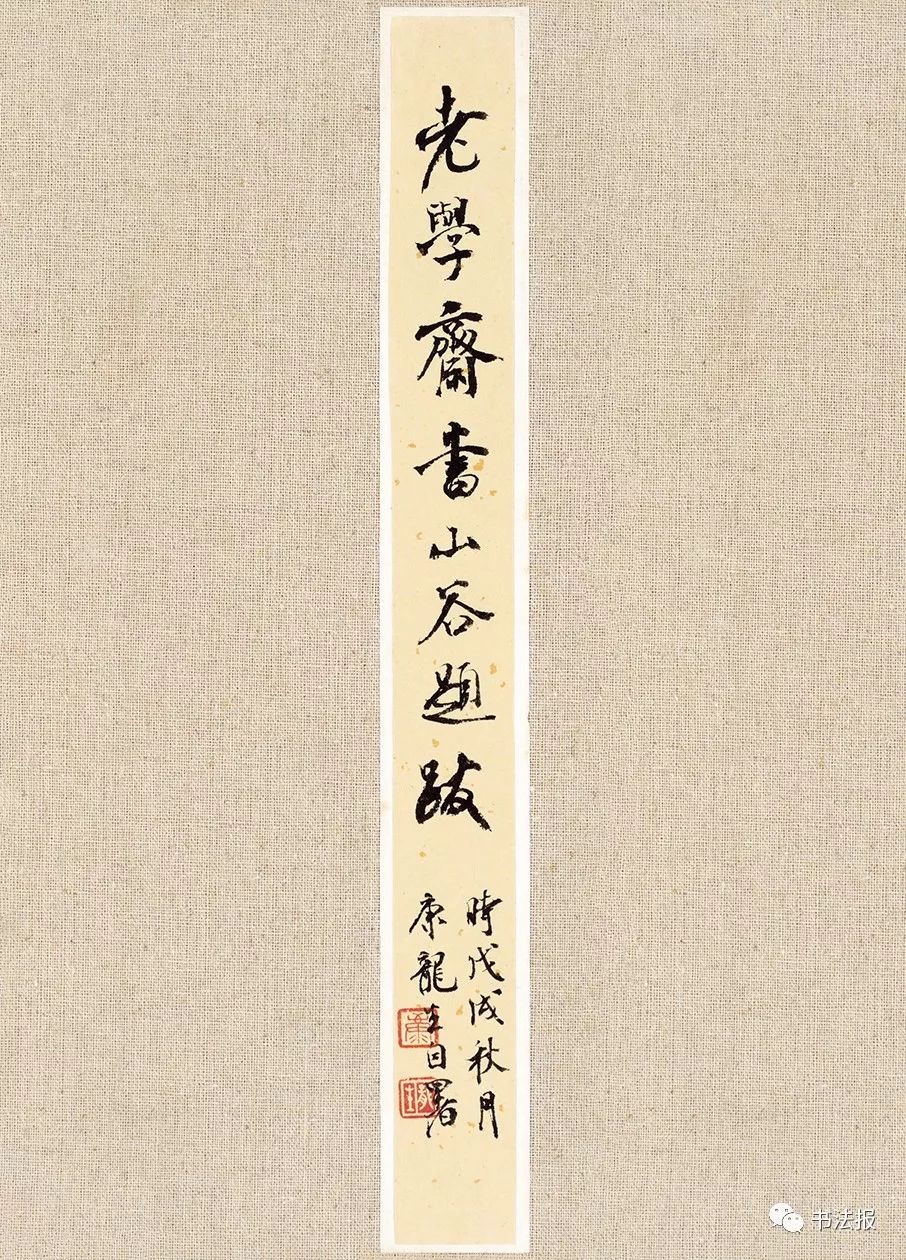 老學齋書山谷題跋
時戊戌秋月
康龍生自署
书法报